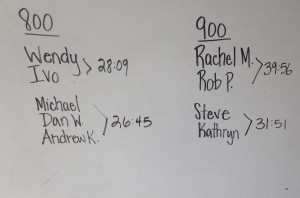 800
Wendy
Ivo
28:09
Michael
Dan W.
Andrew K.
26:45
900
Rachel M.
Rob P.
39:56
Steve
Kathryn
31:51